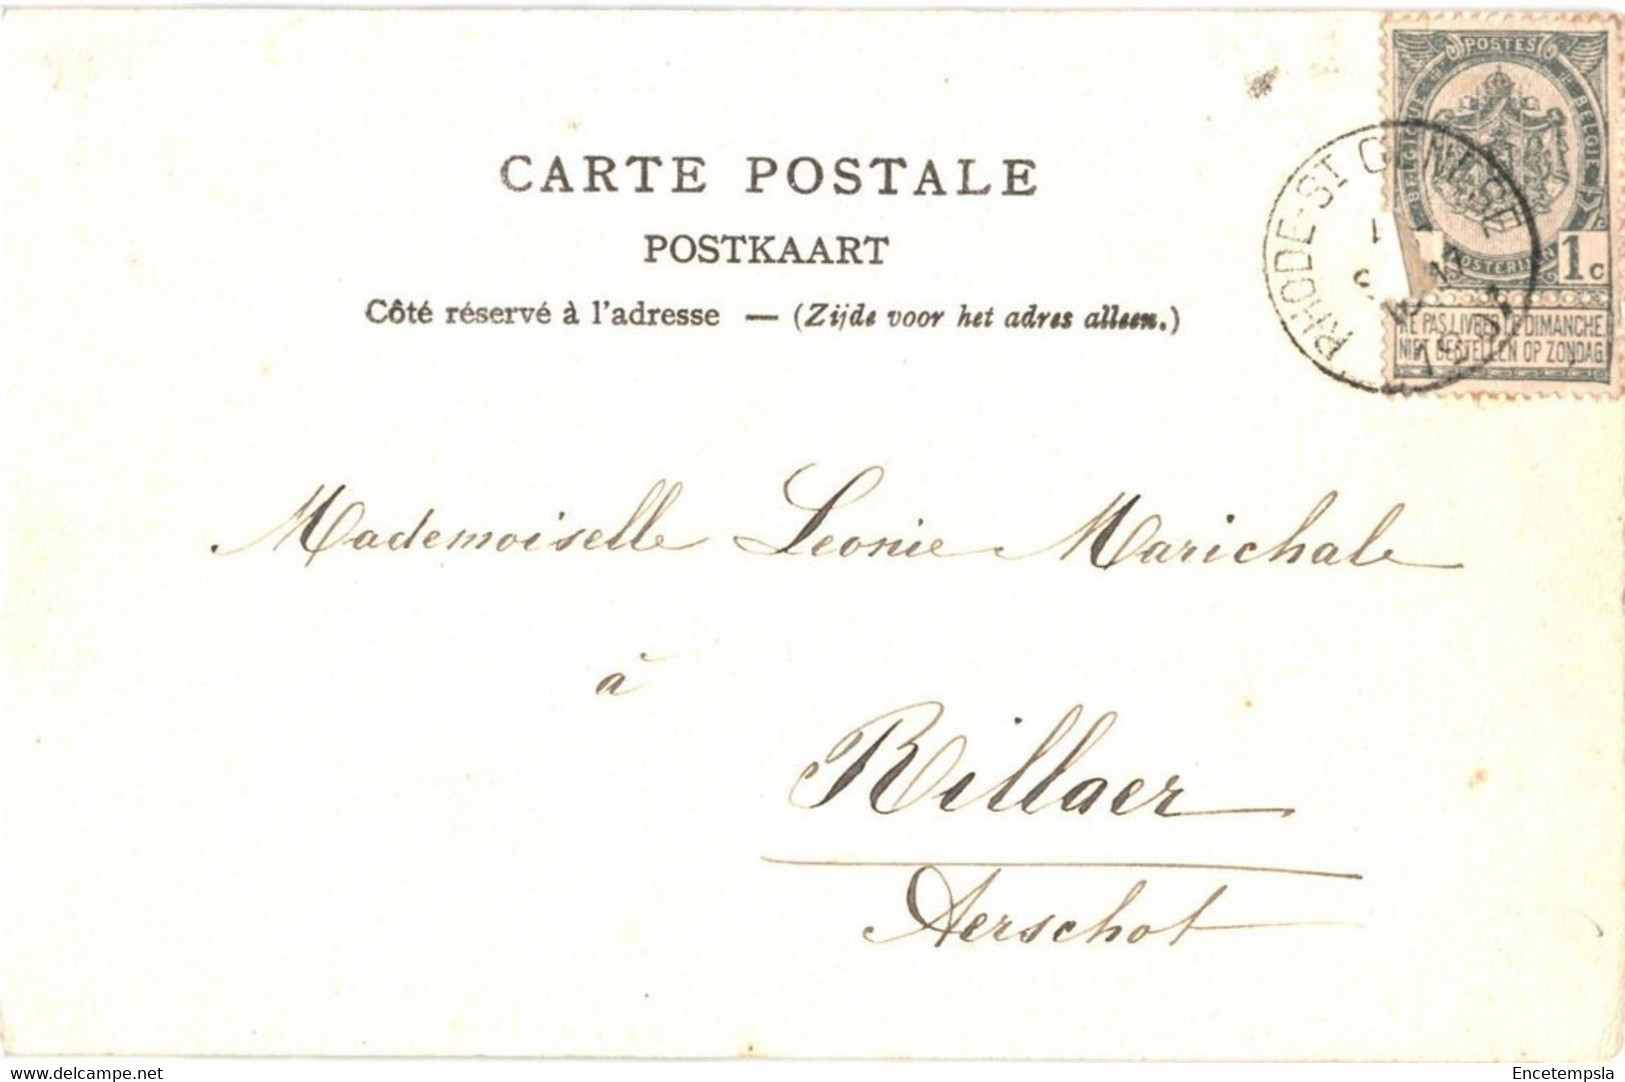 CARTE POSTALE
POSTKAART
Côté réservé à l'adresse — (Zijde voor het adres alleen.)
POSTES
BELGIQUE
BELGIE
1c
NE PAS LIVRER LE DIMANCHE
NIET BESTELLEN OP ZONDAG
RHODE-ST GENÈSE
Mademoiselle Leonie Marichale
à
Rillaer
Aerschot
delcampe.net
Encetempsla